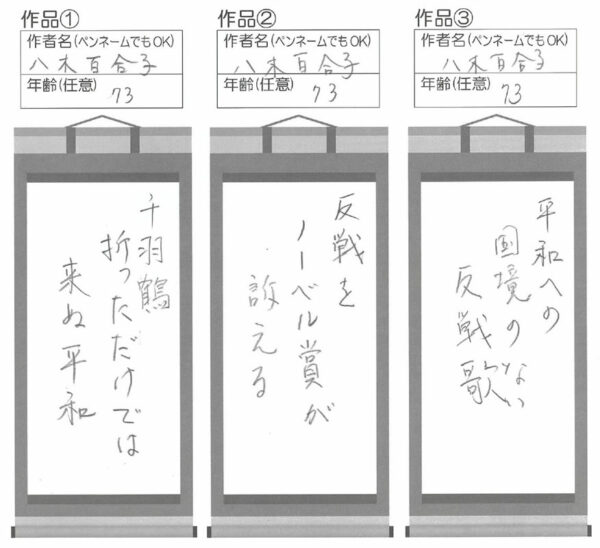 作品①
作者名(ペンネームでもOK)
八木百合子
年齢(任意)
73
千羽鶴
折っただけでは
来ぬ平和
作品②
作者名(ペンネームでもOK)
八木百合子
年齢(任意)
73
反戦を
ノーベル賞が
訴える
作品③
作者名(ペンネームでもOK)
八木百合子
年齢(任意)
73
平和への
国境のない
反戦歌